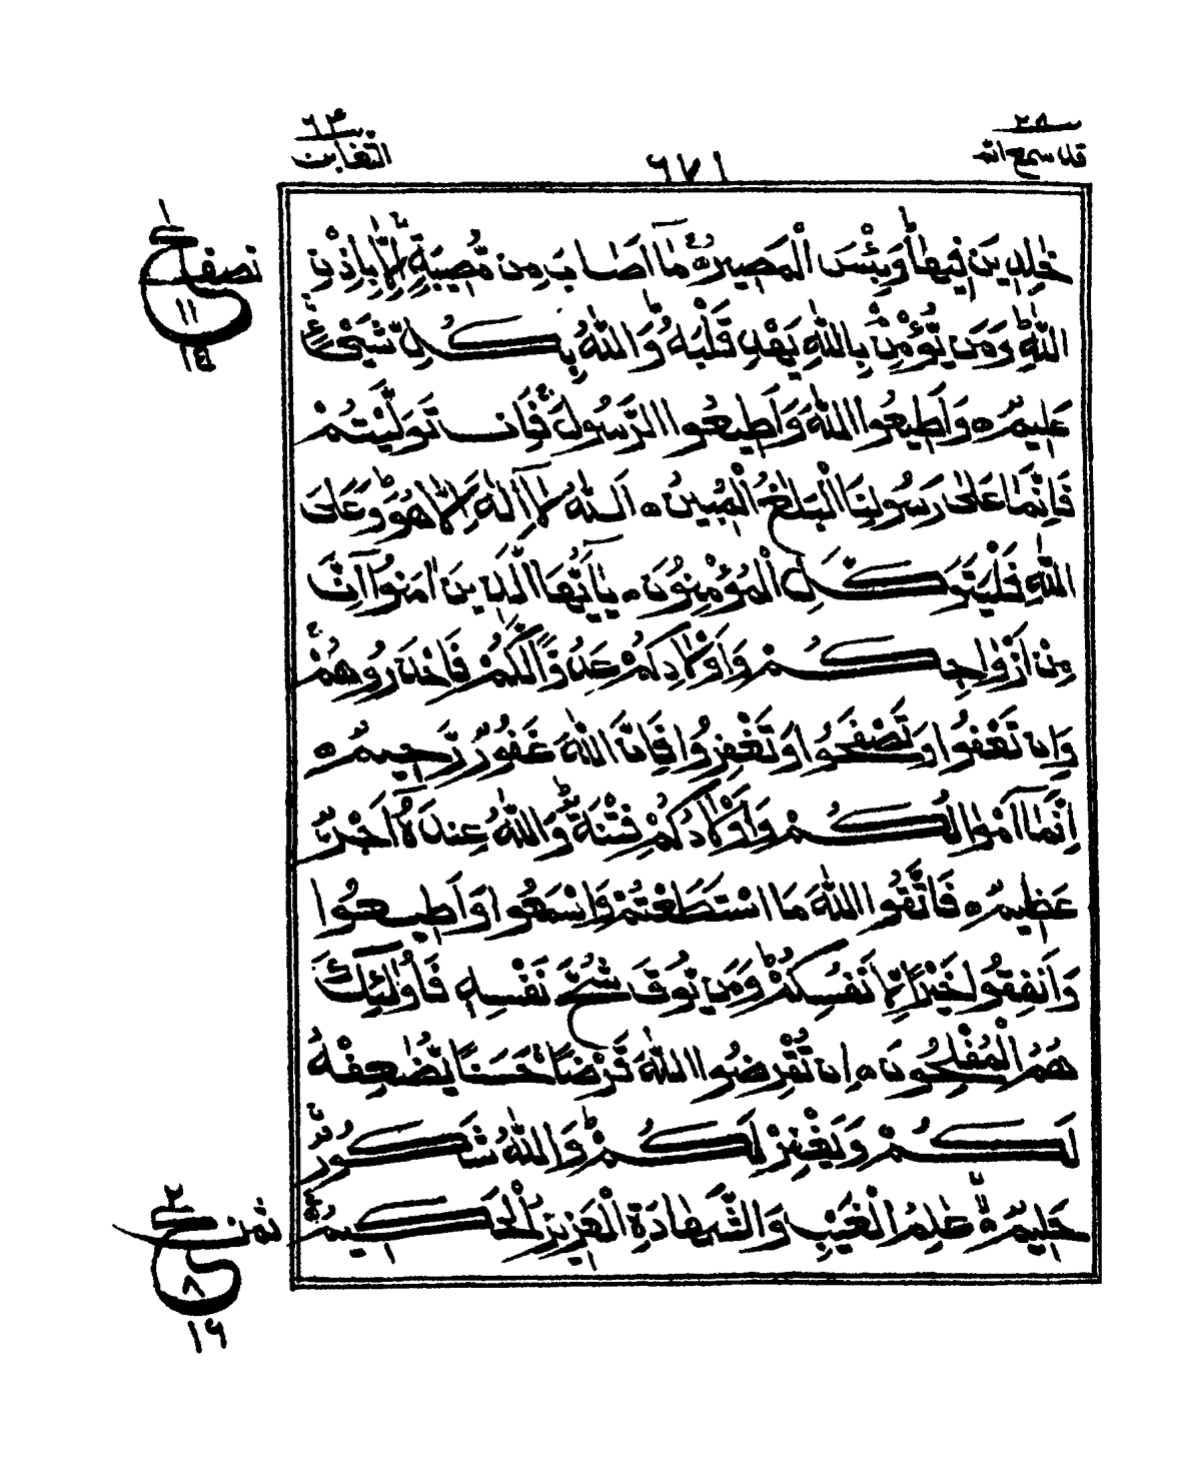 ٢٨
قد سمع الله
٦٧١
٦٤
التغابن
خٰلِدِيْنَ فِيْهَا ؕ وَبِئْسَ الْمَصِيْرُ ۠ مَاۤ اَصَابَ مِنْ مُّصِيْبَةٍ اِلَّا بِاِذْنِ
اللّٰهِ ؕ وَمَنْ يُّؤْمِنْۢ بِاللّٰهِ يَهْدِ قَلْبَهٗ ؕ وَاللّٰهُ بِكُلِّ شَيْءٍ
عَلِيْمٌ ۝ وَاَطِيْعُوا اللّٰهَ وَاَطِيْعُوا الرَّسُوْلَ ۚ فَاِنْ تَوَلَّيْتُمْ
فَاِنَّمَا عَلٰى رَسُوْلِنَا الْبَلٰغُ الْمُبِيْنُ ۝ اَللّٰهُ لَاۤ اِلٰهَ اِلَّا هُوَ ؕ وَعَلَى
اللّٰهِ فَلْيَتَوَكَّلِ الْمُؤْمِنُوْنَ ۝ يٰۤاَيُّهَا الَّذِيْنَ اٰمَنُوْۤا اِنَّ
مِنْ اَزْوَاجِكُمْ وَاَوْلَادِكُمْ عَدُوًّا لَّكُمْ فَاحْذَرُوْهُمْ ۚ
وَاِنْ تَعْفُوْا وَتَصْفَحُوْا وَتَغْفِرُوْا فَاِنَّ اللّٰهَ غَفُوْرٌ رَّحِيْمٌ ۝
اِنَّمَاۤ اَمْوَالُكُمْ وَاَوْلَادُكُمْ فِتْنَةٌ ؕ وَاللّٰهُ عِنْدَهٗۤ اَجْرٌ
عَظِيْمٌ ۝ فَاتَّقُوا اللّٰهَ مَا اسْتَطَعْتُمْ وَاسْمَعُوْا وَاَطِيْعُوْا
وَاَنْفِقُوْا خَيْرًا لِّاَنْفُسِكُمْ ؕ وَمَنْ يُّوْقَ شُحَّ نَفْسِهٖ فَاُولٰٓئِكَ
هُمُ الْمُفْلِحُوْنَ ۝ اِنْ تُقْرِضُوا اللّٰهَ قَرْضًا حَسَنًا يُّضٰعِفْهُ
لَكُمْ وَيَغْفِرْ لَكُمْ ؕ وَاللّٰهُ شَكُوْرٌ
حَلِيْمٌ ۝ عٰلِمُ الْغَيْبِ وَالشَّهَادَةِ الْعَزِيْزُ الْحَكِيْمُ ۠
نصف
١
ع
١١
ثمن
٢
ع
٨
١٦